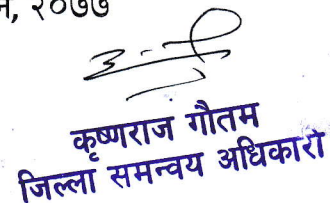 , २०७७
कृष्णराज गौतम
जिल्ला समन्वय अधिकारी